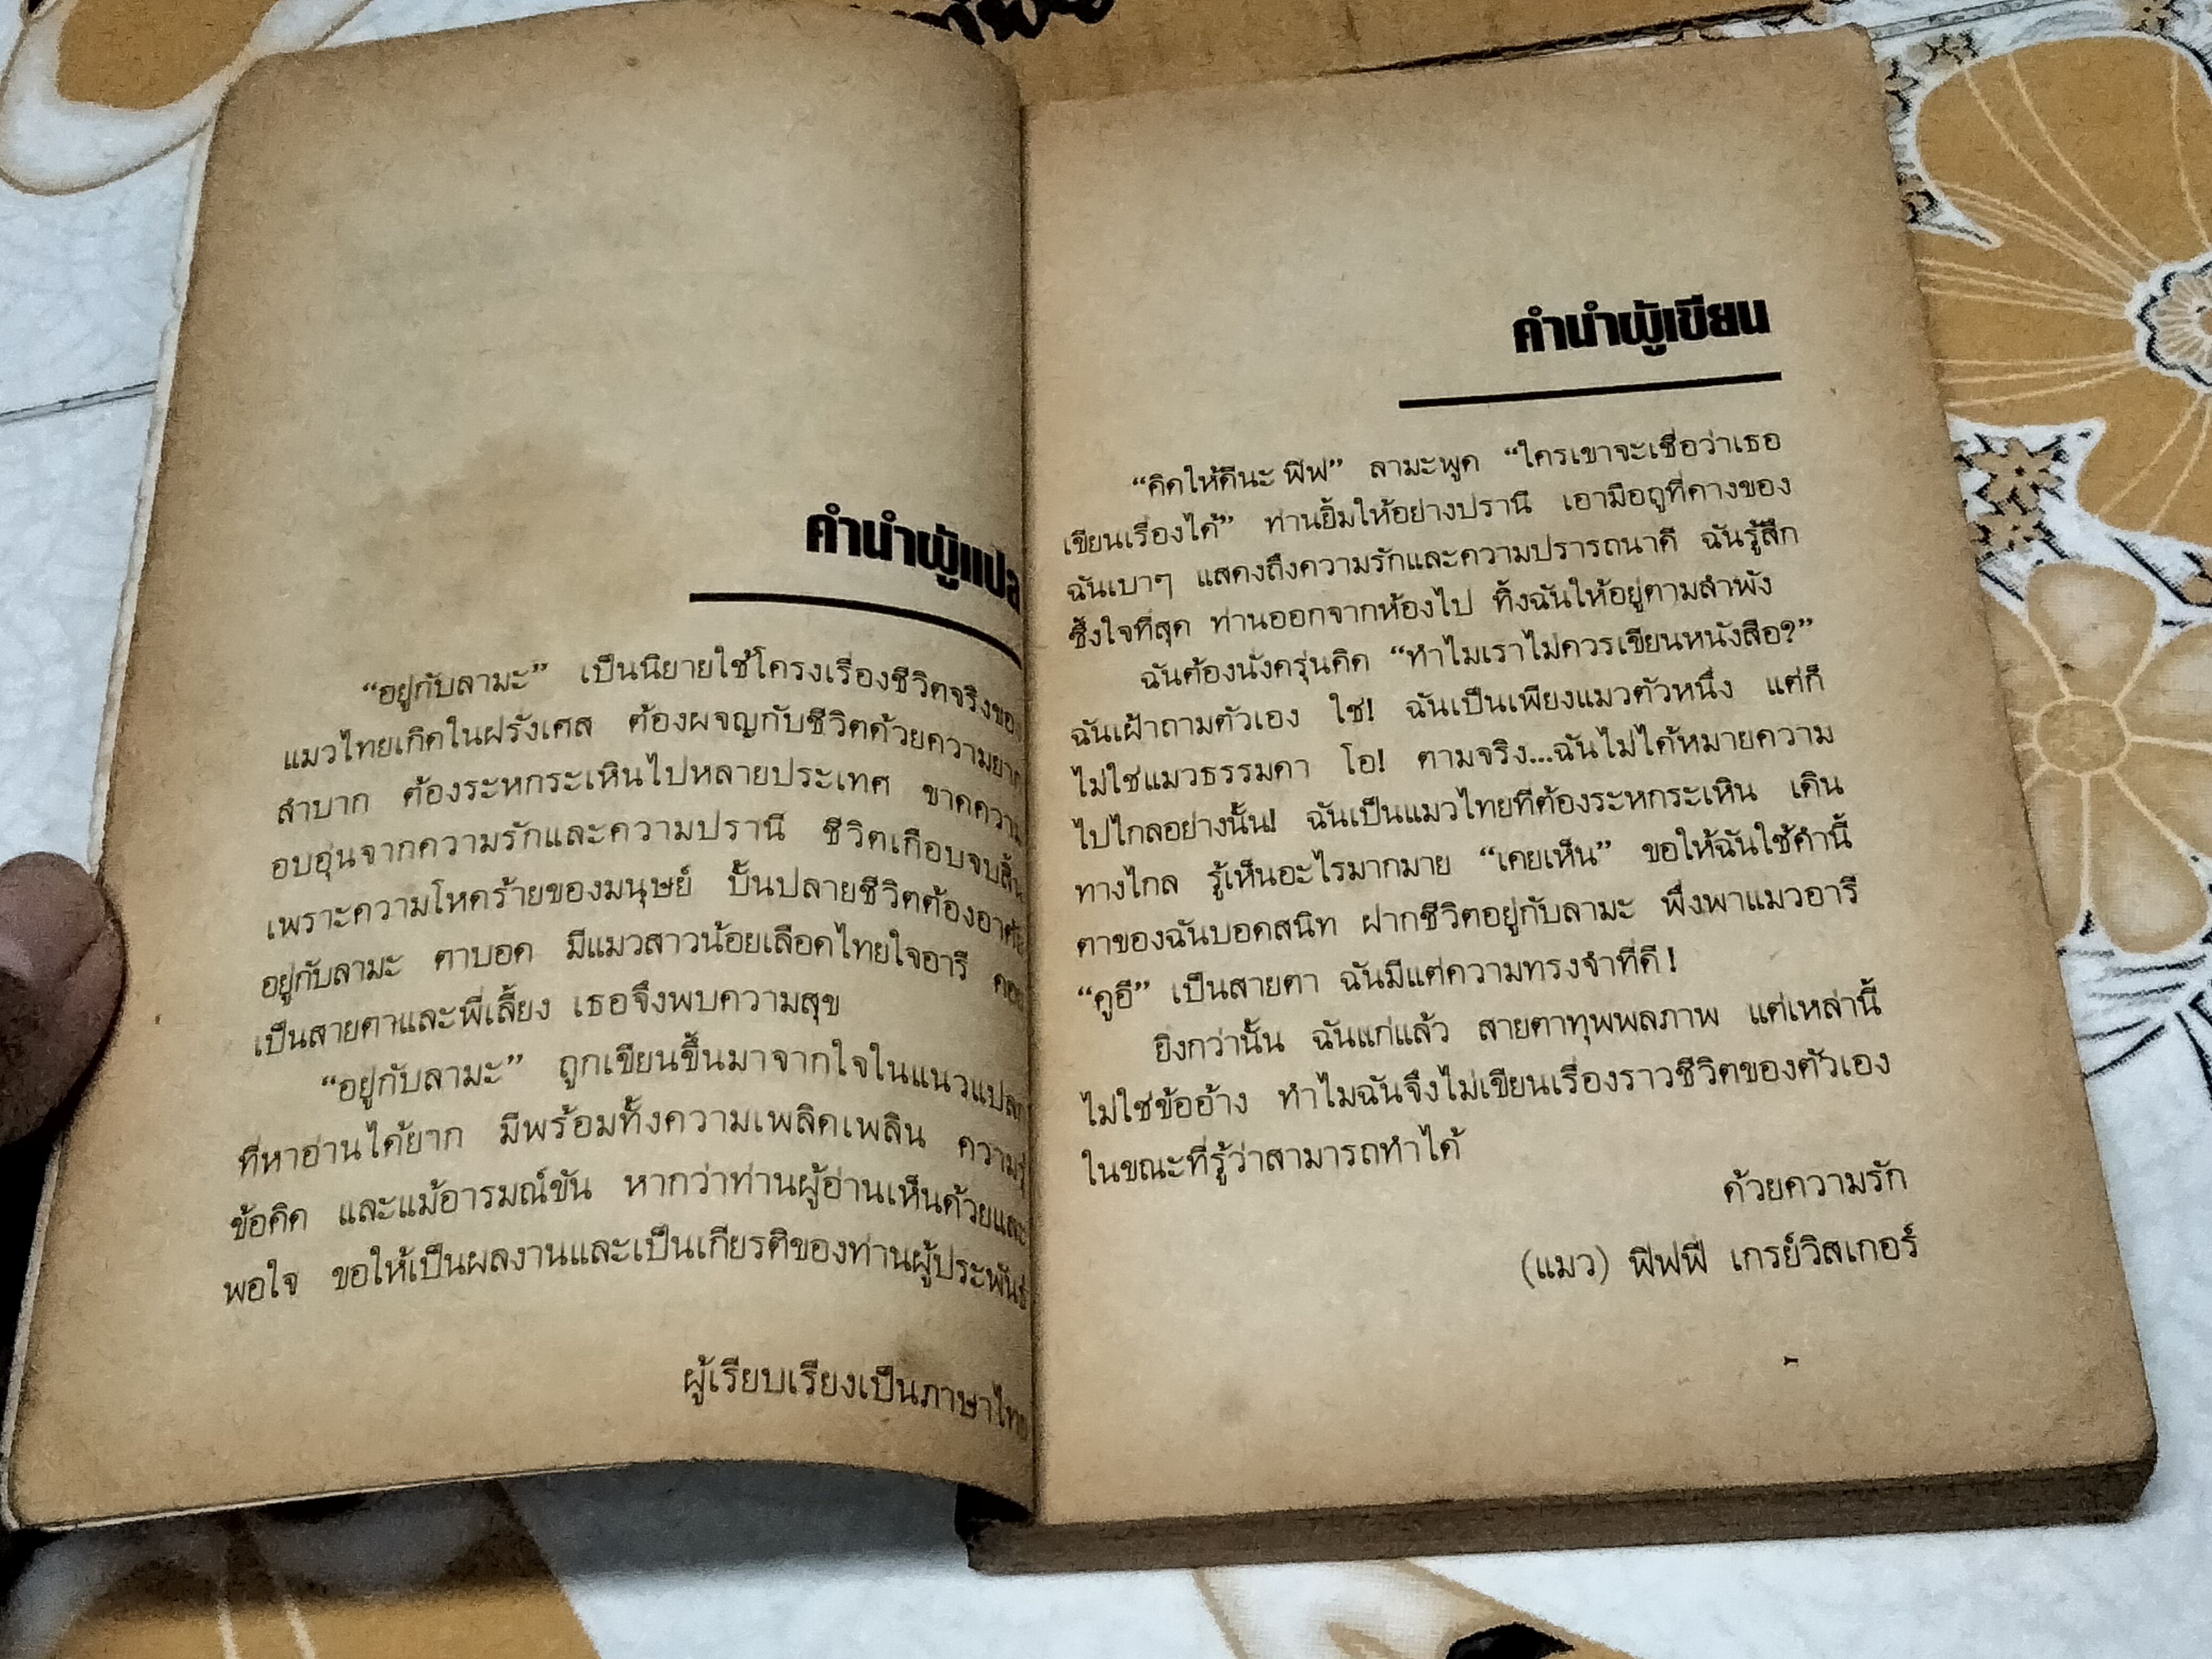 คำนำผู้แปล
“อยู่กับลามะ” เป็นนิยายใช้โครงเรื่องชีวิตจริงของ
แมวไทยเกิดในฝรั่งเศส ต้องผจญกับชีวิตด้วยความยาก
ลำบาก ต้องระหกระเหินไปหลายประเทศ ขาดความ
อบอุ่นจากความรักและความปรานี ชีวิตเกือบจบสิ้น
เพราะความโหดร้ายของมนุษย์ บั้นปลายชีวิตต้องอาศัย
อยู่กับลามะ ตาบอด มีแมวสาวน้อยเลือดไทยใจอารี คอย
เป็นสายตาและพี่เลี้ยง เธอจึงพบความสุข
“อยู่กับลามะ” ถูกเขียนขึ้นมาจากใจในแนวแปลก
ที่หาอ่านได้ยาก มีพร้อมทั้งความเพลิดเพลิน ความรู้
ข้อคิด และแม้อารมณ์ขัน หากว่าท่านผู้อ่านเห็นด้วยและ
พอใจ ขอให้เป็นผลงานและเป็นเกียรติของท่านผู้ประพันธ์
ผู้เรียบเรียงเป็นภาษาไทย
คำนำผู้เขียน
“คิดให้ดีนะ ฟิฟ” ลามะพูด “ใครเขาจะเชื่อว่าเธอ
เขียนเรื่องได้” ท่านยิ้มให้อย่างปรานี เอามือถูที่คางของ
ฉันเบาๆ แสดงถึงความรักและความปรารถนาดี ฉันรู้สึก
ซึ้งใจที่สุด ท่านออกจากห้องไป ทิ้งฉันให้อยู่ตามลำพัง
ฉันต้องนั่งครุ่นคิด “ทำไมเราไม่ควรเขียนหนังสือ?”
ฉันเฝ้าถามตัวเอง ใช่! ฉันเป็นเพียงแมวตัวหนึ่ง แต่ก็
ไม่ใช่แมวธรรมดา โอ! ตามจริง...ฉันไม่ได้หมายความ
ไปไกลอย่างนั้น! ฉันเป็นแมวไทยที่ต้องระหกระเหิน เดิน
ทางไกล รู้เห็นอะไรมากมาย “เคยเห็น” ขอให้ฉันใช้คำนี้
ตาของฉันบอดสนิท ฝากชีวิตอยู่กับลามะ พึ่งพาแมวอารี
“คูอี” เป็นสายตา ฉันมีแต่ความทรงจำที่ดี!
ยิ่งกว่านั้น ฉันแก่แล้ว สายตาทุพพลภาพ แต่เหล่านี้
ไม่ใช่ข้ออ้าง ทำไมฉันจึงไม่เขียนเรื่องราวชีวิตของตัวเอง
ในขณะที่รู้ว่าสามารถทำได้
ด้วยความรัก
(แมว) ฟิฟฟี่ เกรย์วิสเกอร์